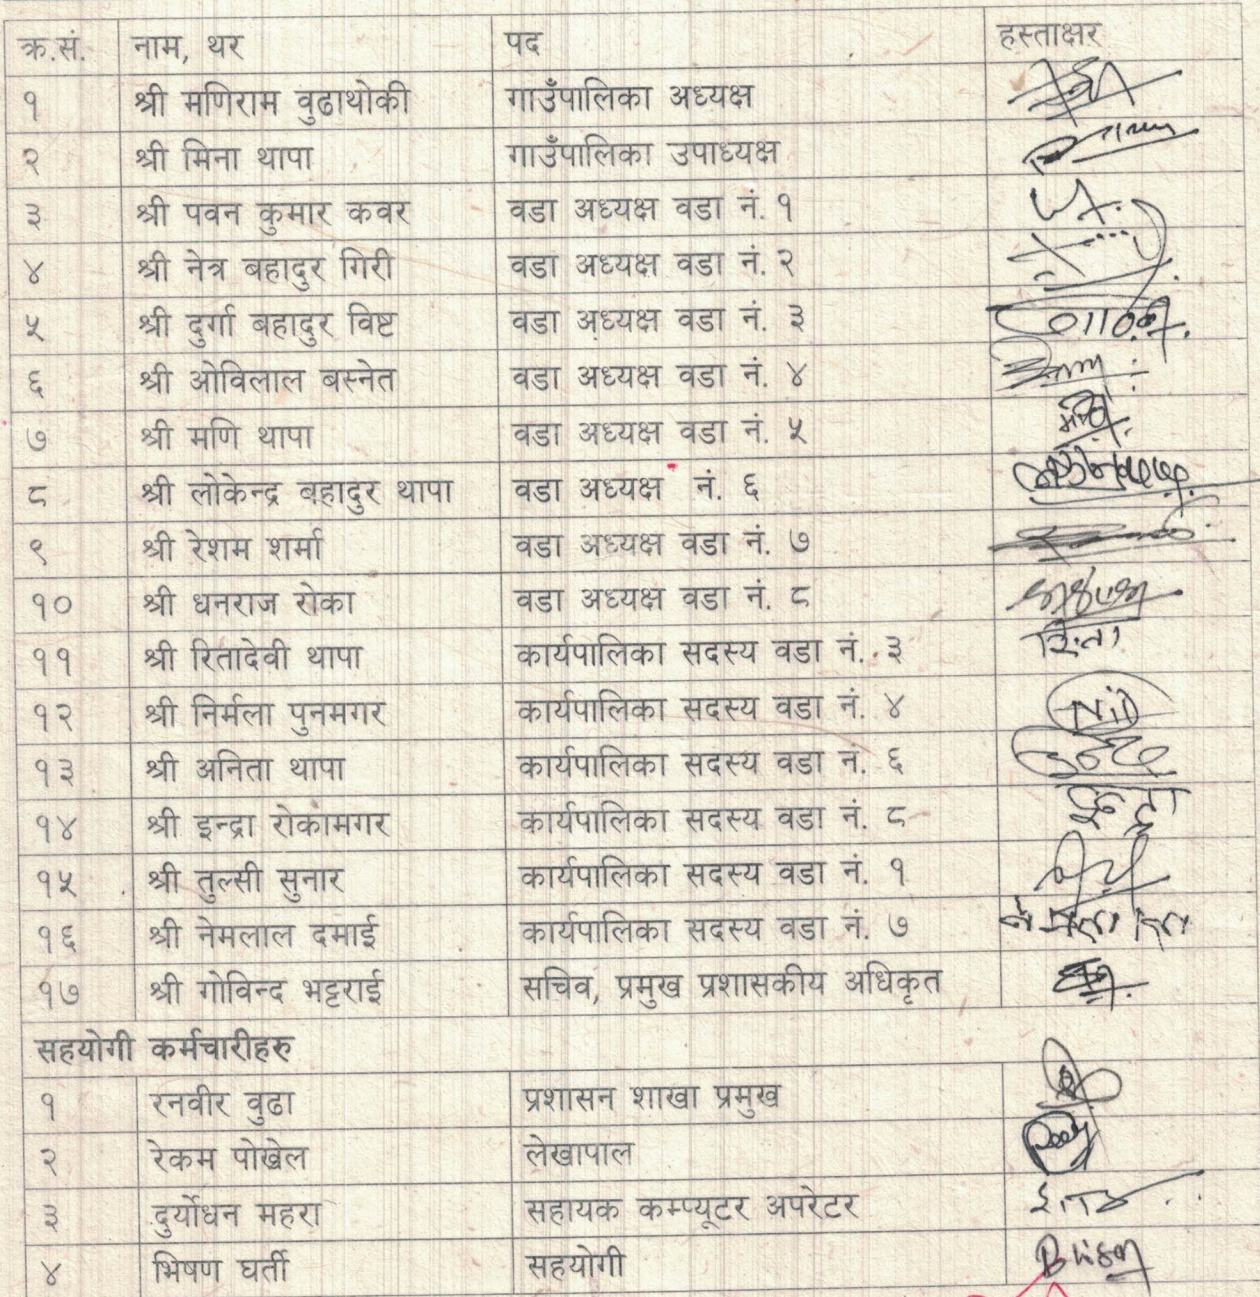 क्र.सं. नाम, थर पद हस्ताक्षर
१ श्री मणिराम वुढाथोकी गाउँपालिका अध्यक्ष
२ श्री मिना थापा गाउँपालिका उपाध्यक्ष
३ श्री पवन कुमार कवर वडा अध्यक्ष वडा नं. १
४ श्री नेत्र बहादुर गिरी वडा अध्यक्ष वडा नं. २
५ श्री दुर्गा बहादुर विष्ट वडा अध्यक्ष वडा नं. ३
६ श्री ओविलाल बस्नेत वडा अध्यक्ष वडा नं. ४
७ श्री मणि थापा वडा अध्यक्ष वडा नं. ५
८ श्री लोकेन्द्र बहादुर थापा वडा अध्यक्ष नं. ६
९ श्री रेशम शर्मा वडा अध्यक्ष वडा नं. ७
१० श्री धनराज रोका वडा अध्यक्ष वडा नं. ८
११ श्री रितादेवी थापा कार्यपालिका सदस्य वडा नं. ३
१२ श्री निर्मला पुनमगर कार्यपालिका सदस्य वडा नं. ४
१३ श्री अनिता थापा कार्यपालिका सदस्य वडा नं. ६
१४ श्री इन्द्रा रोकामगर कार्यपालिका सदस्य वडा नं. ८
१५ श्री तुल्सी सुनार कार्यपालिका सदस्य वडा नं. १
१६ श्री नेमलाल दमाई कार्यपालिका सदस्य वडा नं. ७
१७ श्री गोविन्द भट्टराई सचिव, प्रमुख प्रशासकीय अधिकृत
सहयोगी कर्मचारीहरु
१ रनवीर वुढा प्रशासन शाखा प्रमुख
२ रेकम पोख्रेल लेखापाल
३ दुर्योधन महरा सहायक कम्प्यूटर अपरेटर
४ भिषण घर्ती सहयोगी